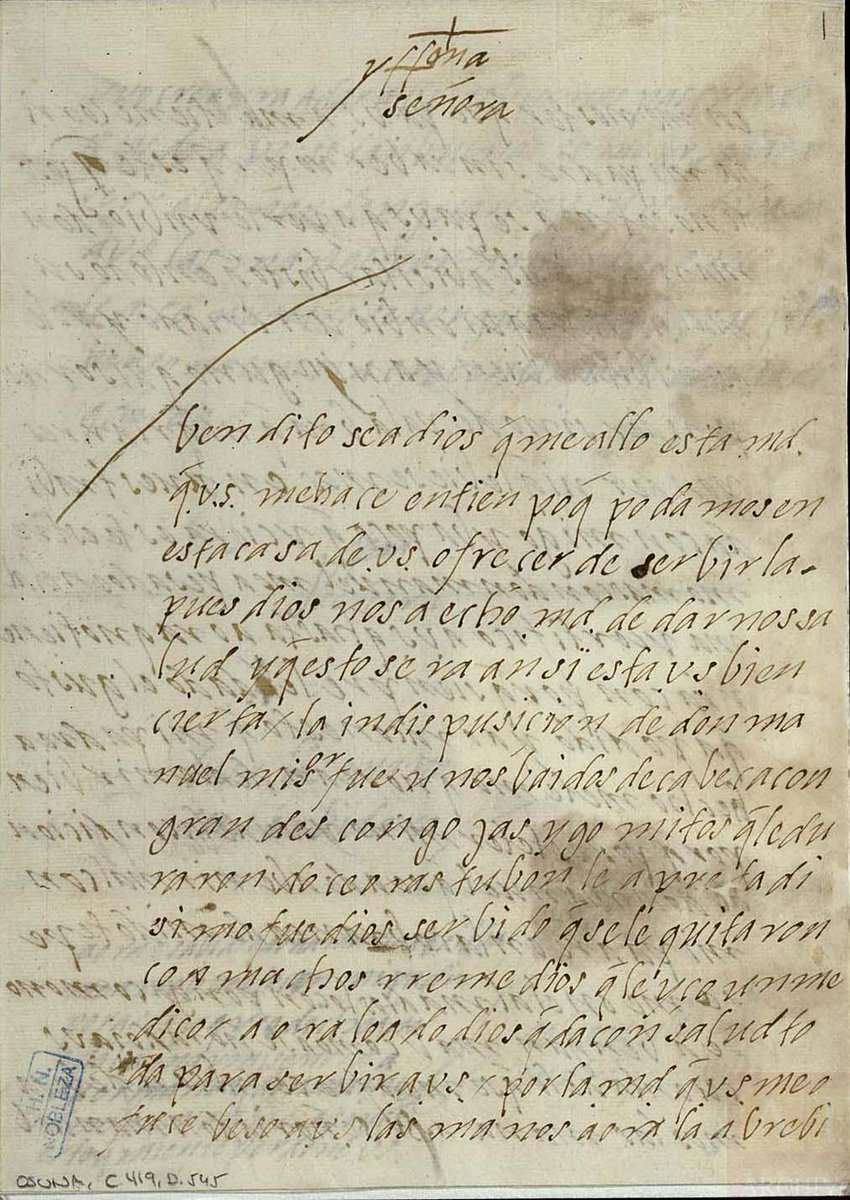 yllma
señora
1
bendito sea dios q̃ me allo esta md.
q̃.v.s. me hace en tienpo q̃ podamos en
esta casa de.v.s. ofrecer de serbirla.
pues dios nos a echo md. de dar nos sa
lud y q̃ esto sera ansi esta vs bien
cierta / la indispusicion de don ma
nuel mi sor fue unos baidos de cabeça con
grandes congojas y gomitos q̃ le du
raron doce oras tubon le apretadi
simo fue dios serbido q̃ se le quitaron
con muchos rremedios q̃ le yço un me
dico / aora loado dios q̃da con salud to
da para serbir a vs / por la md q̃ vs me o
frece beso a vs. las manos aora la a brebi
A.H.N.
NOBLEZA
OSUNA, C.419, D.545